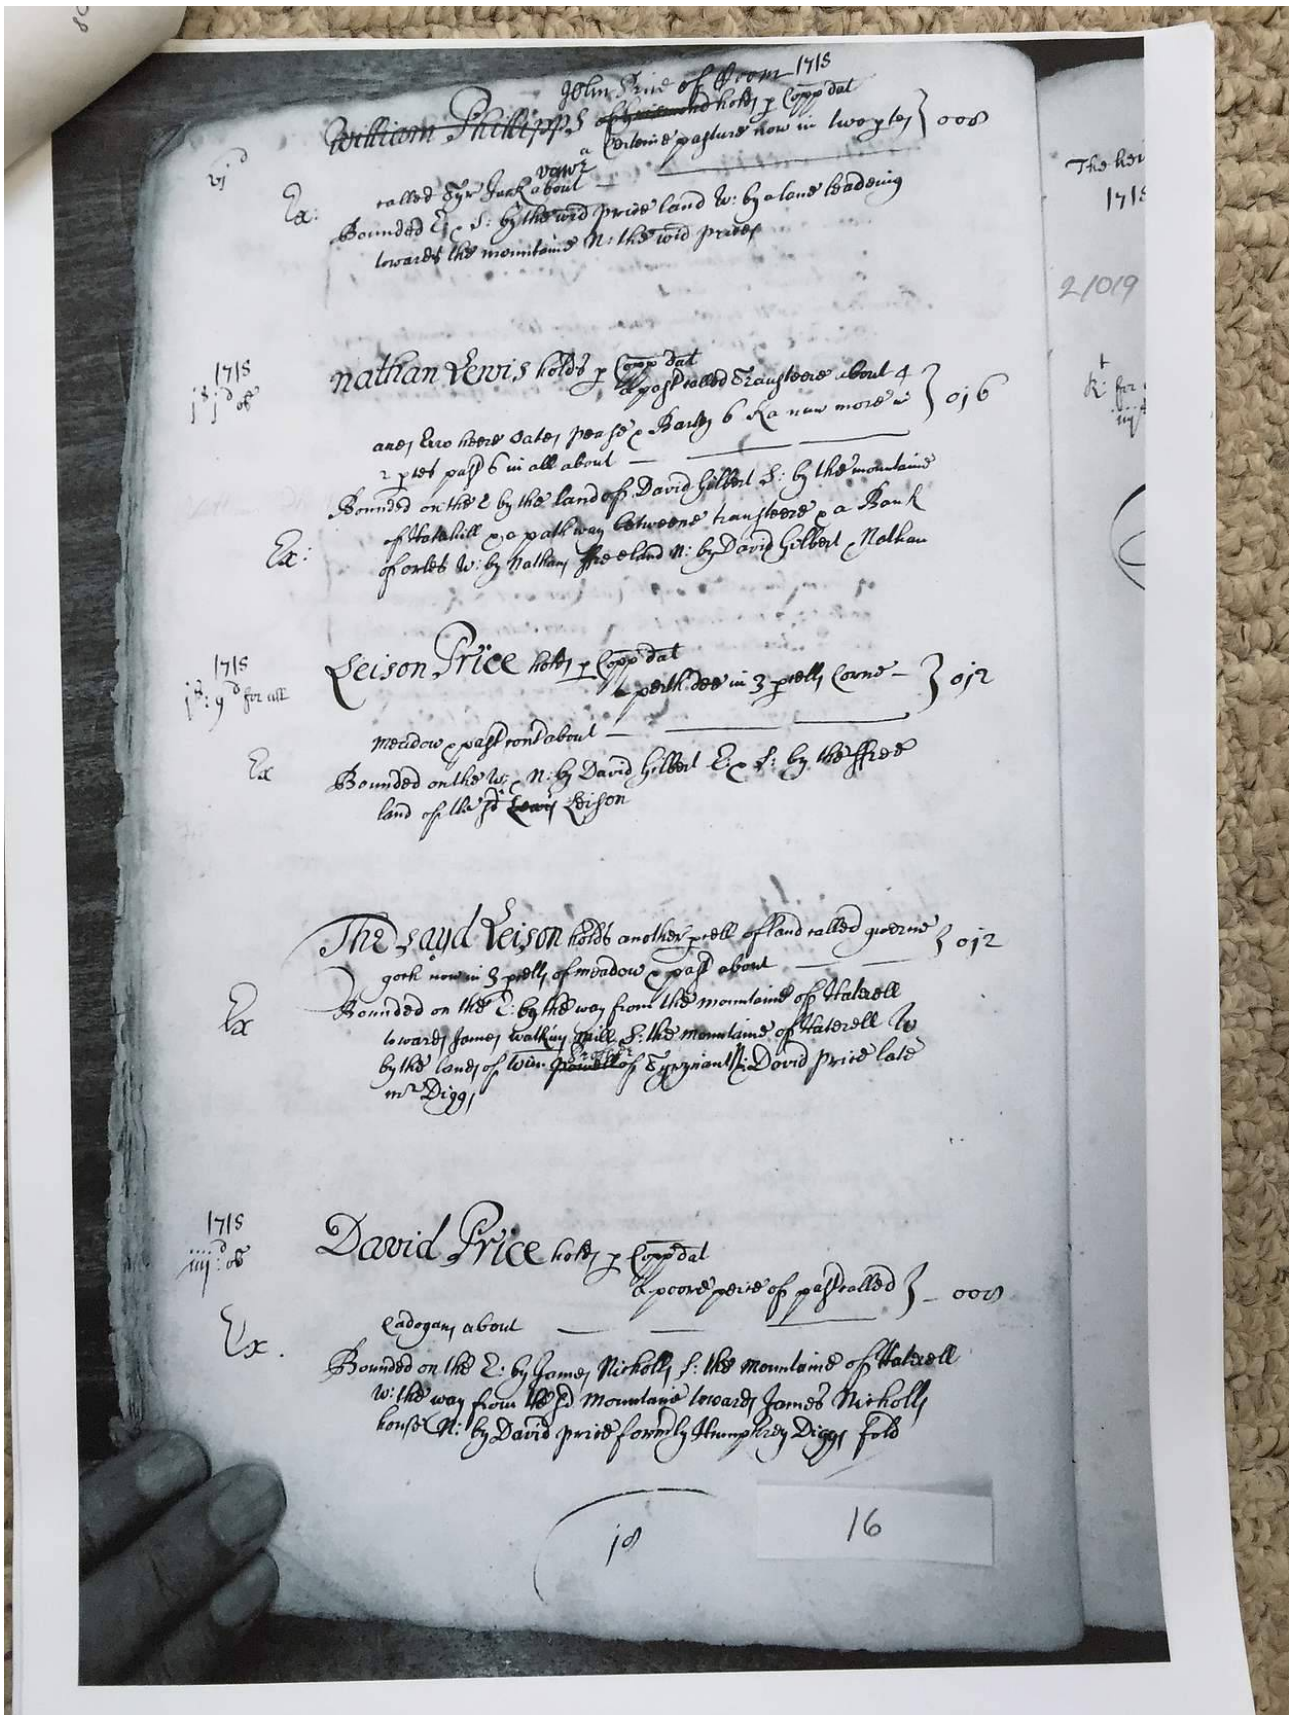 John Price of Coom 1718
William Phillipps of holds p Copp dat
a Certeine pasture now in two ptes } 008
vj d
vawr
called Tyr Jack about
Ex:
Bounded E & S: by the wid price land W: by a lane leadeing
towards the mountaine N: the wid prices
The hei
1718
21019
1718
js: jd ob
Nathan Lewis holds p Copp dat
a past called Transteere about 4 } 016
acres Two heere Oates pease & Barly 6 Ka now more in
2 ptes past 6 in all about
Bounded on the E by the land of David Gilbert S: by the mountaine
of Hatehill & a path way betweene transteere & a Bank
Ex:
of orles W: by Nathans ffreeland N: by David Gilbert Nathan
1718
js: 9d for all
Leison Price holds p Copp dat
a perth dee in 3 pcells Corne } 012
meadow & past cont about
Ex
Bounded on the W: & N: by David Gilbert E & S: by the ffree
land of the sd Lewis Leison
The sayd Leison holds another pcell of land called guerne } 012
goch now in 3 pcells of meadow & past about
Bounded on the E: by the way from the mountaine of Haterell
Ex
towards James watkins S: the mountaine of Haterell W
by the lands of Wm Powell of David Price late
mr Diggs
1718
iiijd: ob
David Price holds p Copp dat
A poore peice of past called } 008
Cadogans about
Ex.
Bounded on the E: by James Nicholls S: the mountaine of Haterell
W: the way from the sd mountaine towards James Nicholls
house N: by David price formrly Humphrey Diggs fold
18
16